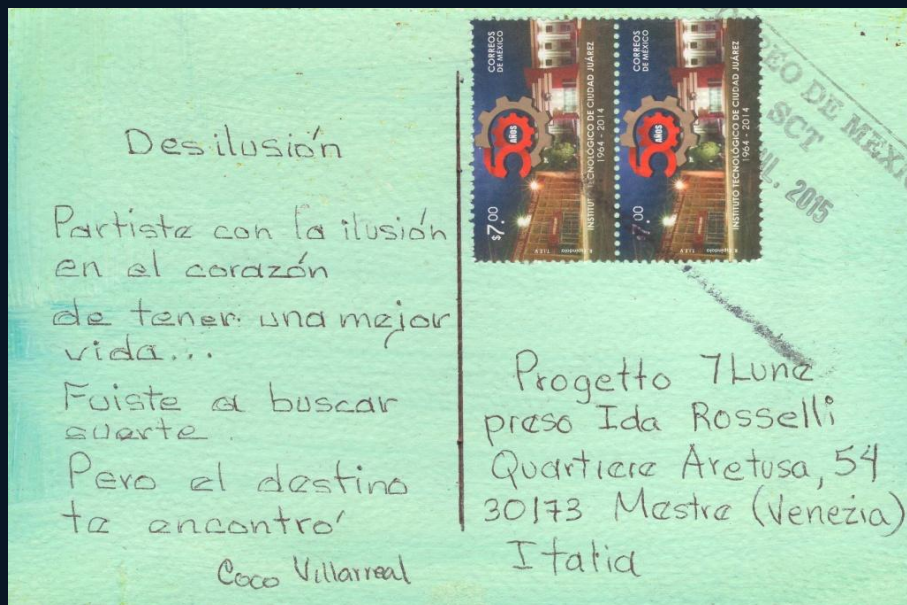 Desilusión
Partiste con la ilusión
en el corazón
de tener una mejor
vida...
Fuiste a buscar
suerte.
Pero el destino
te encontró
Coco Villarreal
CORREOS
DE MÉXICO
50
AÑOS
$7.00
INSTITUTO TECNOLÓGICO DE CIUDAD JUÁREZ
1964 - 2014
T.I.E.V.
CORREOS
DE MÉXICO
50
AÑOS
7.00
INSTITUTO TECNOLÓGICO DE CIUDAD JUÁREZ
1964 - 2014
T.I.E.V.
EO DE MEXI
SCT
2015
Progetto 7Lune
preso Ida Rosselli
Quartiere Aretusa, 54
30173 Mestre (Venezia)
Italia